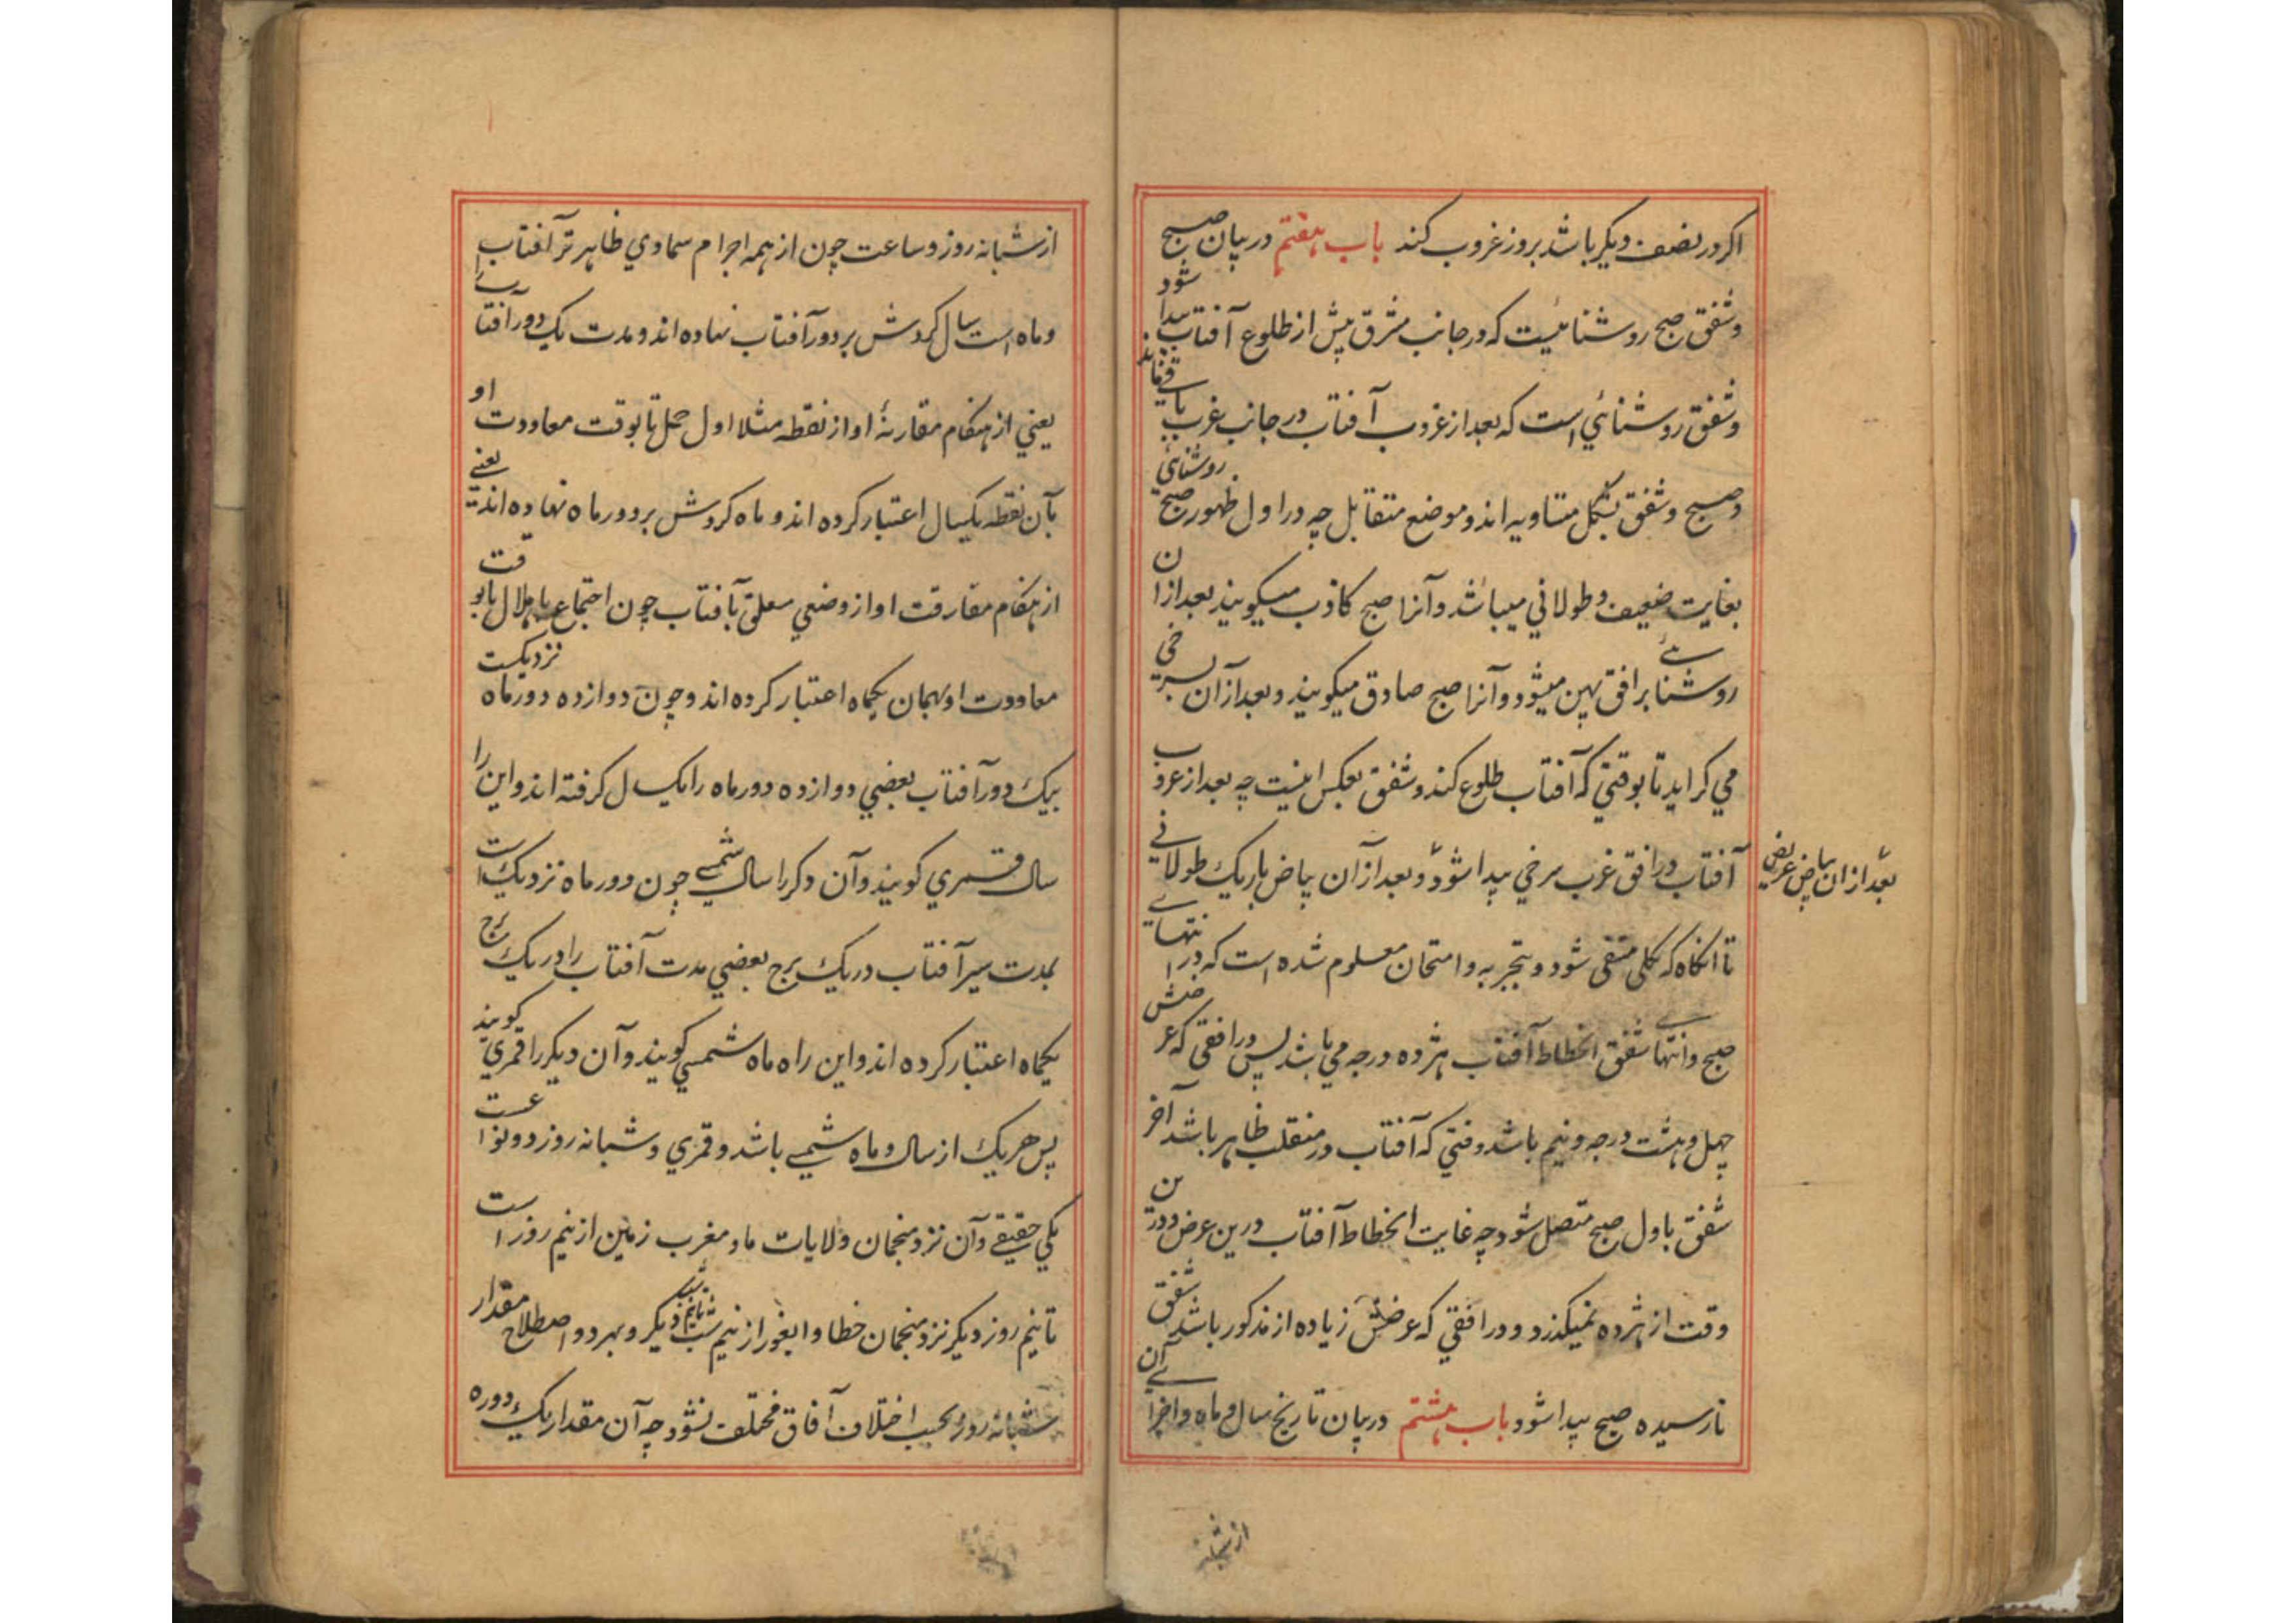 اکر در نصف دیکر باشد بروز غروب کند باب هفتم در بیان صبح
وشفق صبح روشنائیست که در جانب مشرق پیش از طلوع آفتاب پیدا شود
وشفق روشنائي است که بعد از غروب آفتاب در جانب غرب باقی ماند
وصبح وشفق بشکل متساویه اند و موضع متقابل چه در اول ظهور صبح روشنایی
بغایت ضعیف وطولاني میباشد وآنرا صبح کاذب میکویند بعد ازان
روشنائے بر افق پهن میشود وآنرا صبح صادق میکویند وبعد از آن بسرخی
مي کراید تا بوقتي که آفتاب طلوع کند وشفق بعکس اینست چه بعد از غروب
آفتاب در افق غرب سرخي پیدا شود وبعد از آن بیاض باریک طولانے
بعد ازان بیاض عریض
تا انکاه که بکلی منتفی شود وبتجربه وامتحان معلوم شده است که در ابتدای
صبح وانتهاے شفق انحطاط آفتاب هژده درجه مي باشد پس در افقی که عرضش
چهل وهشت درجه ونیم باشد وقتي که آفتاب در منقلب ظاهر باشد آخر
شفق باول صبح متصل شود چه غایت انحطاط آفتاب درین عرض ودرین
وقت از هژده نمیکذرد ودر افقي که عرضش زیاده از مذکور باشد شفق
نارسیده صبح پیدا شود باب هشتم در بیان تاریخ سال وماه واجزاے آن
از شبانه
از شبانه روز وساعت چون از همه اجرام سماوي ظاهر تر آفتاب
وماه است سال کردش بر دور آفتاب نهاده اند ومدت یک دور آفتاب را
یعني از هنکام مقارنهٔ او از نقطه مثلا اول حمل تا بوقت معاودت او
بآن نقطه یکسال اعتبار کرده اند وماه کردش بر دور ماه نهاده اند یعنے
از هنکام مفارقت او از وضعي معلق بآفتاب چون اجتماع یا هلال تا بوقت
معاودت او بهمان یکماه اعتبار کرده اند وچون دوازده دور ماه نزدیکست
بیک دور آفتاب بعضي دوازده دور ماه را یکسال کرفته اند واین را
سال قمري کویند وآن دکر را سال شمسے چون دور ماه نزدیک است
بمدت سیر آفتاب در یک برج بعضي مدت آفتاب را در یک برج
یکماه اعتبار کرده اند واین راه ماه شمسي کویند وآن دیکر را قمري کویند
پس هر یک از سال وماه شمسے باشد وقمري وشبانه روز دو نوعست
یکي حقیقے وآن نزد منجمان ولایات ما ومغرب زمین از نیم روز است
تا نیم روز دیکر نزد منجمان خطا وایغور از نیم شب تا نیم شب دیکر وبهر دو اصطلاح مقدار
شبانه روز بحسب اختلاف آفاق مختلف نشود چه آن مقدار یک دوره